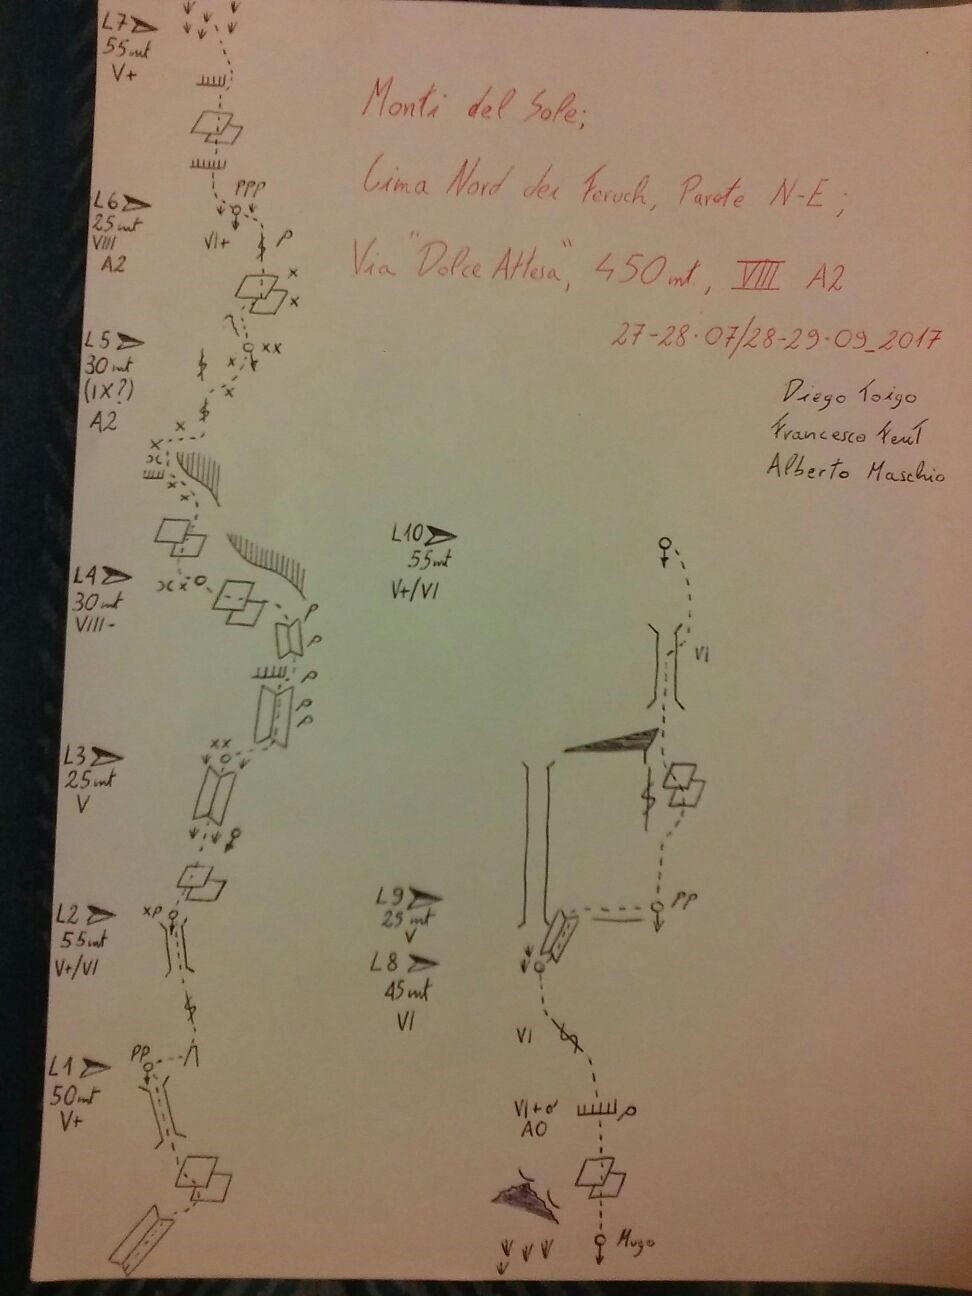 Monti del Sole;
Cima Nord dei Feruch, Parete N-E;
Via "Dolce Attesa", 450mt, VIII A2
27-28.07/28-29.09_2017
Diego Toigo
Francesco Fent
Alberto Maschio
L7
55mt
V+
L6
25mt
VIII
A2
PPP
VI+
P
x
x
L5
30mt
(IX?)
A2
xx
x
x
x
x
x x
L4
30mt
VIII-
x
P
P
P
P
P
L3
25mt
V
xx
L2
55mt
V+/VI
xP
L1
50mt
V+
PP
L10
55mt
V+/VI
VI
L9
25mt
V
PP
L8
45mt
VI
VI
VI+ o
A0
P
Mugo